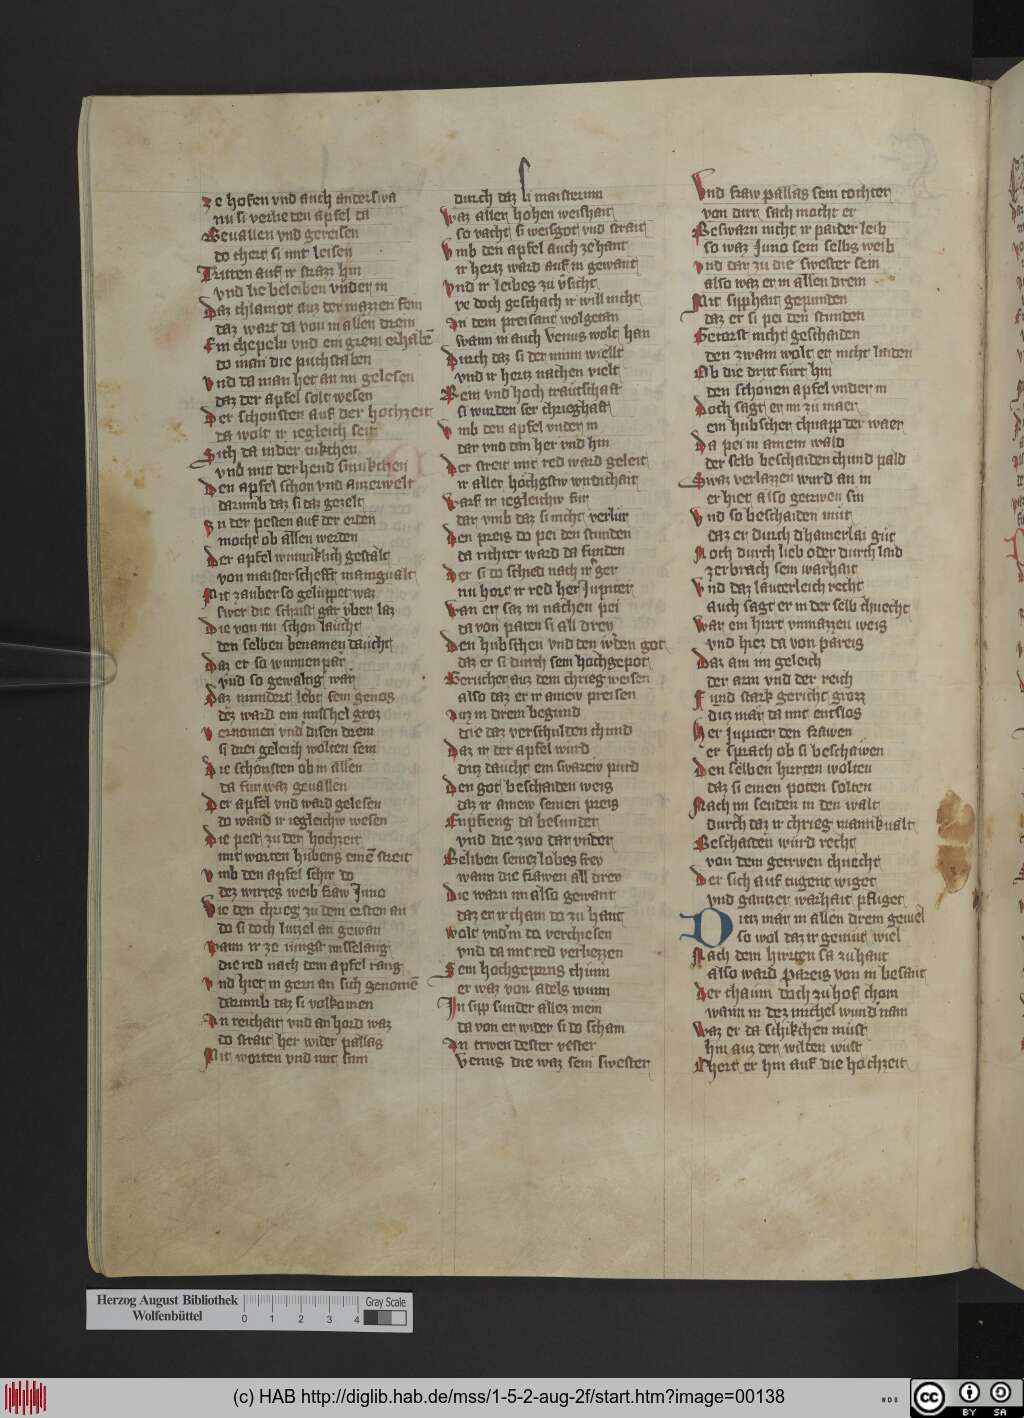 Ze hofen vnd auch anderswa
nu si verrieten apfel da
Geuallen vnd gereisen
do chert si mit leisen
Tritten auf ir strazz hin
vnd lie beleiben vnder in
Daz chlainot auz der mazzen fein
daz wart da von in allen drein
Ein chepeln vnd ein grein erhabē
do man die puchstaben
Vnd da man het an im gelesen
daz der apfel solt wesen
Der schonsten auf der hochzeit
da wolt ir iegleich seit
Sich da in der tukchen
vnd mit der hend smukchen
Den apfel schon vnd auzerwelt
darumb daz si daz gezelt
In der pesten auf der erden
mocht ob allen werden
Der apfel wunniklich gestalt
von maisterschefft manigualt
Mit zauber so geluppet waz
swer die schrift gar vber laz
Die von im schon laucht
den selben benamen daucht
Daz er so wunnenpar
vnd so gewaltig war
Daz nindert lebt sein genos
dez ward ein mischel groz
Vernomen vnd disen drein
si drei geleich wolten sein
Die schonsten ob in allen
da fur waz geuallen
Der apfel vnd ward gelesen
do wand ir iegleichw wesen
Die pest zu der hochzeit
mit worten hubens einē streit
Vmb den apfel schir do
dez wirtes weib fraw Juno
Die den chrieg zu dem ersten an
do si doch lutzel an gewan
Wann ir ze iungst misselang
die red nach dem apfel rang
Vnd hiet in gern an sich genomē
darumb daz si volkomen
An reichait vnd an hord waz
do strait her wider pallas
Mit worten vnd mit sinn
durch daz si maisterinn
Waz aller hohen weishait
so vacht si weisgot vnd strait
Vmb den apfel auch ze hant
ir hertz ward auf in gewant
Vnd ir leibes zu v̈sicht
ye doch geschach ir will nicht
In dem preisant wolgetan
swann in auch Venus wolt han
Durch daz si der minn wielt
vnd ir hertz nachen vielt
Rein vnd hoch trautschaft
si wurden ser chrieghaft
Vmb den apfel vnder in
dar vnd dan her vnd hin
Der streit mit red ward geleit
ir aller hochgstw wirdichait
Warf ir iegleichw fur
dar vmb daz si nicht verlur
Den preis do pei den stunden
da richter ward da funden
Der si do schied nach ir ger
nu hort ir red her Jupiter
Wan er saz in nachen pei
da von paten si all drey
Den hubschen vnd den w̓den got
daz er si durch sein hochgepot
Geruchet auz dem chrieg weisen
also daz er ir ainew preisen
Auz in drein begund
die daz verschulden chund
Daz ir der apfel wurd
ditz daucht ein swarew purd
Den got beschaiden weis
daz ir ainew seinen preis
Enpfieng da besunder
vnd die zwo dar vnder
Beliben seinez lobes frey
wann die frawen all drey
Die warn im also gewant
daz er ir cham do zu hant
Wolt vnd̓m do verchiesen
vnd da mit red verliezzen
Sein hochgepurns chunn
er waz von adels wunn
In sipp sunder allez mein
da von er wider si do scham
An trwen dester vester
Venus die waz sein swester
Vnd fraw pallas sein tochter
von dirr sach mocht er
Beswarn nicht ir paider leib
so waz Juno sein selbs weib
Vnd dar zu die swester sein
also waz er in allen drein
Mit sipphait gepunden
daz er si pei den stunden
Getorst nicht geschaiden
den zwain wolt er nicht laiden
Ob die dritt fürt hin
den schonen apfel vnder in
Doch sagt er im zu maer
ein hubscher chnapp der waer
Da pei in ainem wald
der selb beschaiden chund pald
Swaz verlazzen wurd an in
er hiet also getrwen sin
Vnd so beschaiden mut
daz er durch d̓hainerlai gut
Noch durch lieb oder durch laid
zerbrach sein warhait
Vnd daz lauterleich recht
auch sagt er in der selb chnecht
War ein hirt vnmazzen weis
vnd hiez da von pareis
Daz am im geleich
der arm vnd der reich
Fund stark gericht grozz
ditz mar da mit entslos
Her Jupiter den frawen
er sprach ob si beschawen
Den selben hirrten wolten
daz si einen poten solten
Nach im senden in den walt
durch daz ir chrieg manikualt
Beschaiden wurd recht
von dem getrwen chnecht
Der sich auf tugent wiget
vnd gantzer warhait pfliget
Ditz mar in allen drein geuiel
so wol daz ir gemut wiel
Nach dem hirrten sa zu hant
also ward pareis von in besant
Der cham doch zu hof chom
wann in dez michel wund̓ nam
Waz er da schikchen must
hin auz der wilden wust
Chert er hin auf die hochzeit
Herzog August Bibliothek
Wolfenbüttel
0 1 2 3 4
Gray Scale
(c) HAB http://diglib.hab.de/mss/1-5-2-aug-2f/start.htm?image=00138
cc BY SA